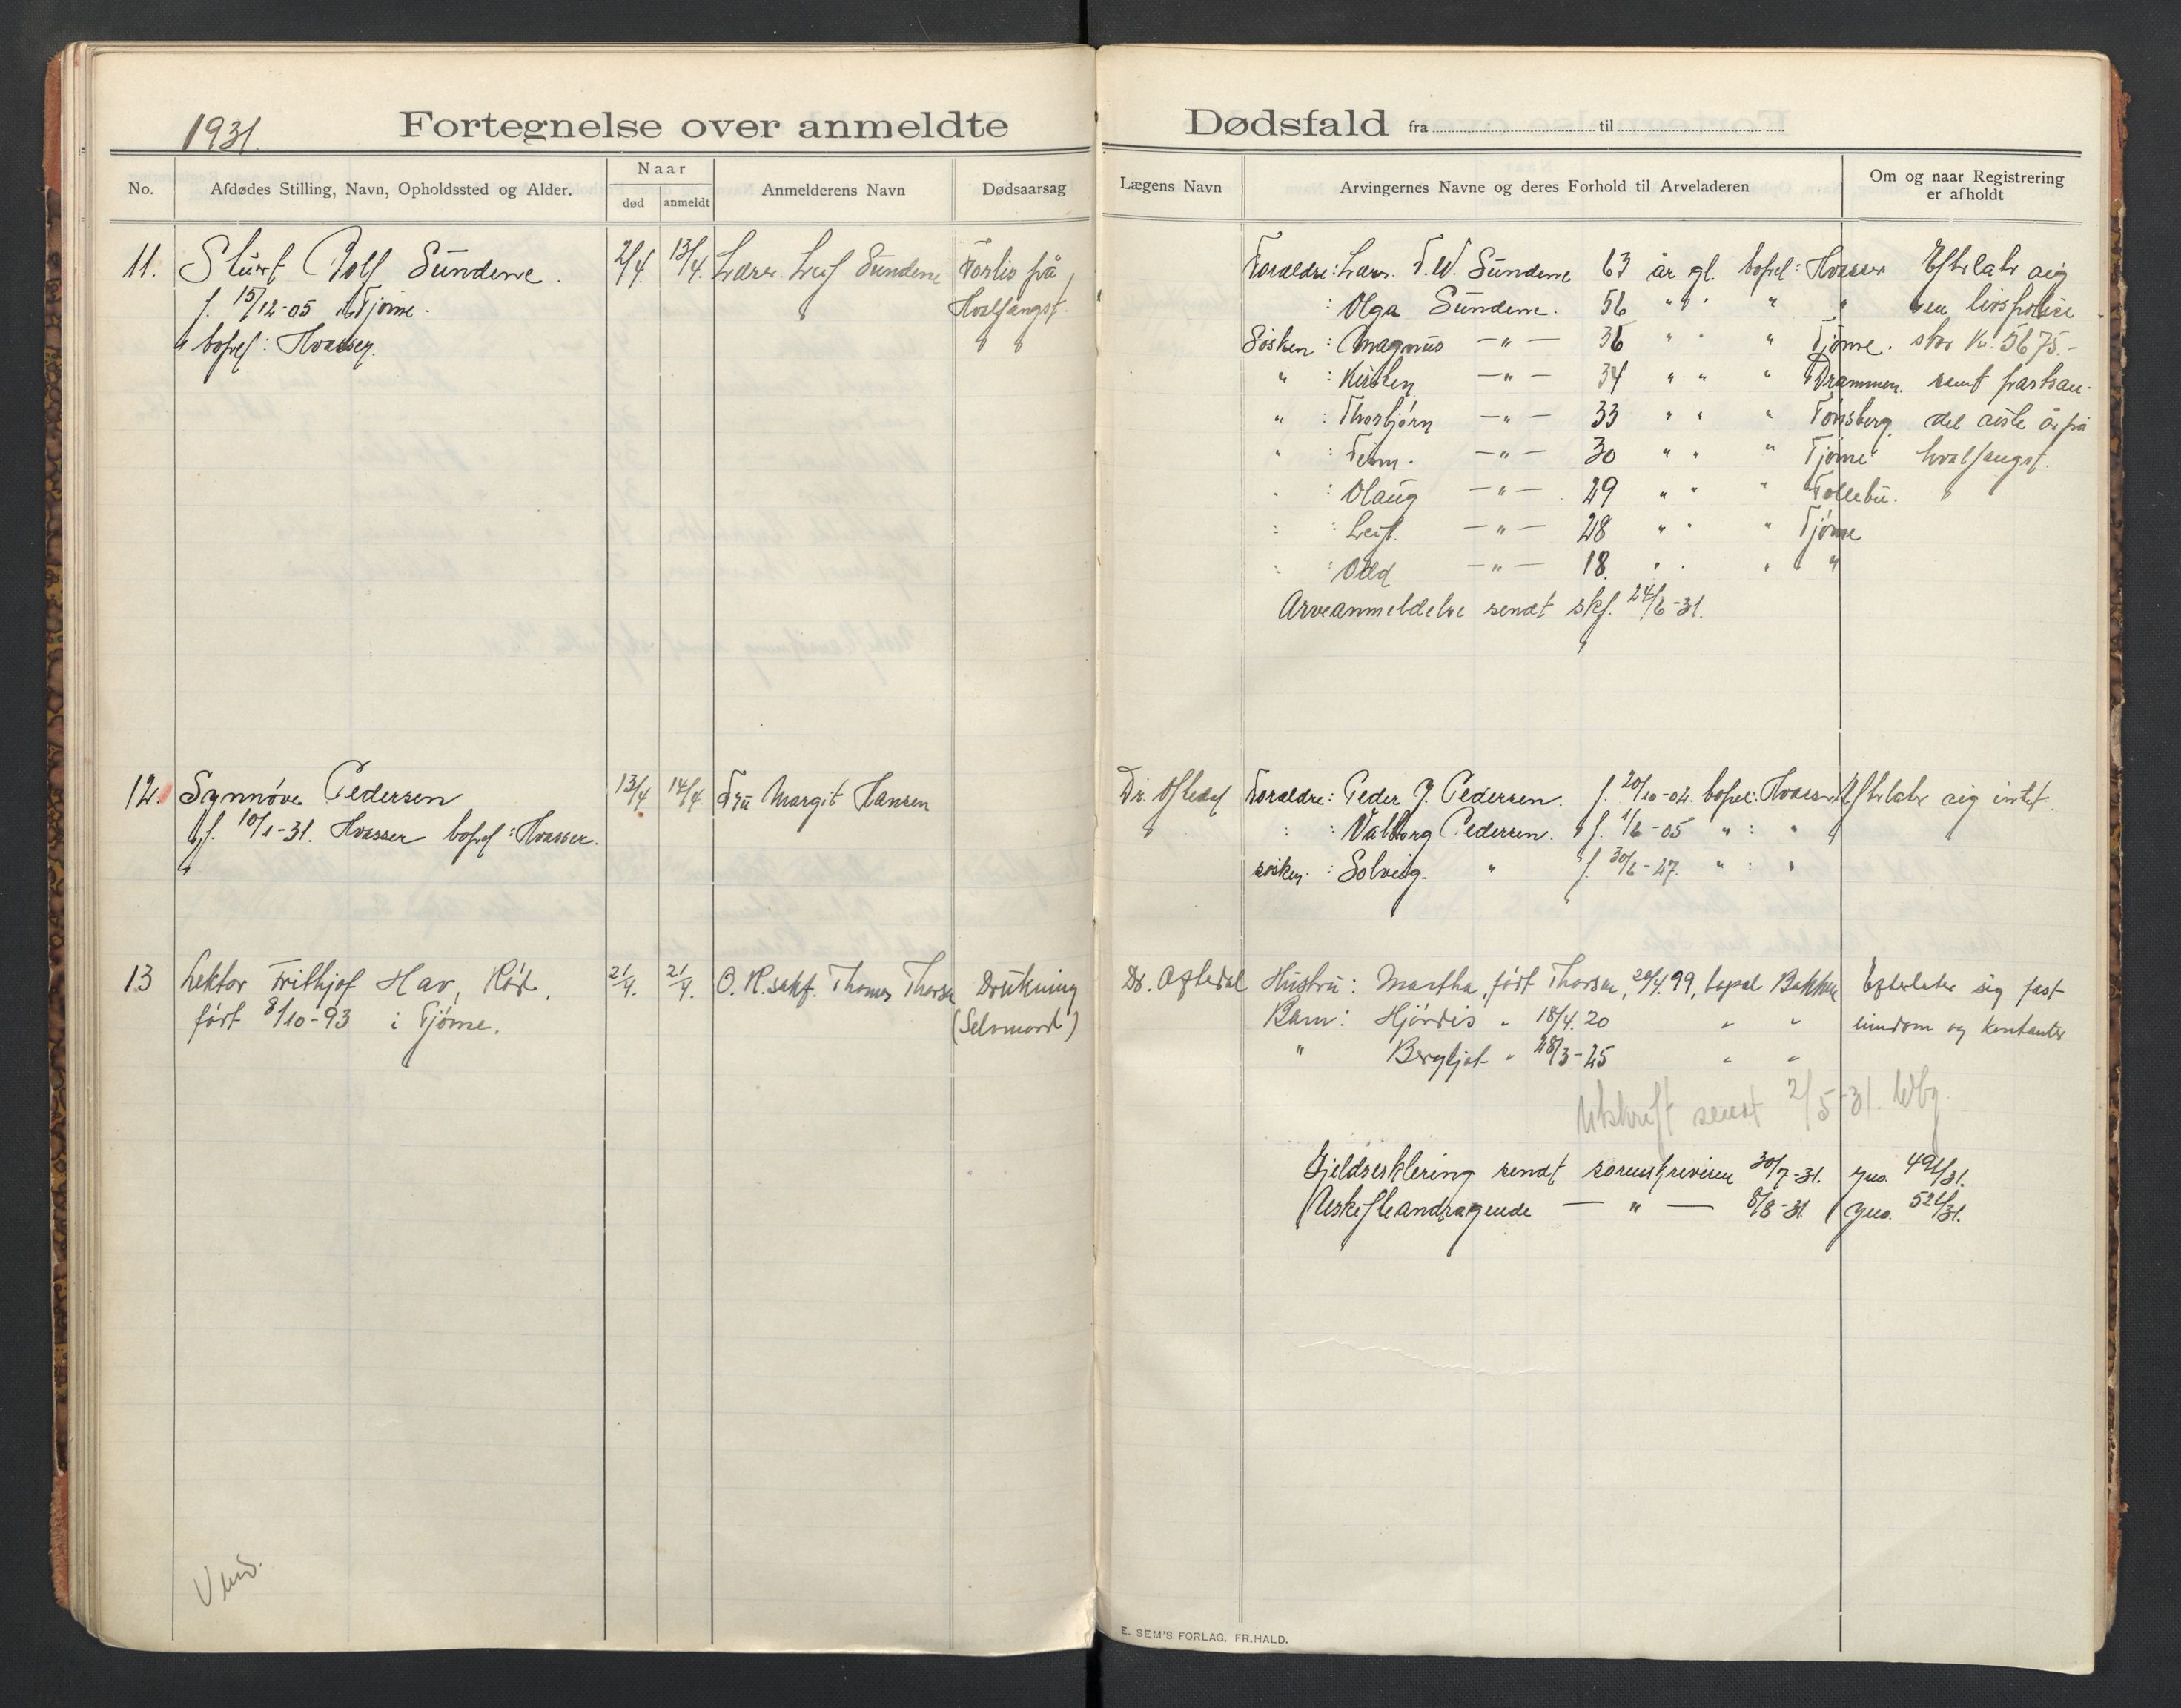 1931.
Fortegnelse over anmeldte Dødsfald fra til
No.
Afdødes Stilling, Navn, Opholdssted og Alder.
Naar
død
anmeldt
Anmelderens Navn
Dødsaarsag
Lægens Navn
Arvingernes Navne og deres Forhold til Arveladeren
Om og naar Registrering
er afholdt
11.
Rolf Sundene.
f. 15/12-05 i Tjøme.
bopel: Hvasser.
2/4.
13/4.
Lærer. Leif Sundene
Forlis på
Hvalfangst.
Foraldre: Lærer. T. W. Sundene 63 år gl. bopel: Hvasser
: Olga Sundene. 56 " " " "
Søsken : Magnus — " — 36 " " " Tjøme.
" : Kirsten — " — 34 " " " Drammen.
" : Thorbjørn — " — 33 " " " Tønsberg.
" : Finn. — " — 30 " " " Tjøme
" : Olaug — " — 29 " " " Follebu.
: : Leif. — " — 28 " " " Tjøme
: : Odd — " — 18. " " " "
Arveanmeldelse sendt skf. 24/6-31.
Efterlater sig
en livspolice
stor kr. 5675.-
samt partsan-
del siste år på
hvalfangst.
12.
Synnøve Pedersen
f. 10/1-31. Hvasser bopel: Hvasser.
13/4
14/4.
Fru Margit Hansen
Dr. Oftedal
Foraldre: Peder J. Pedersen. f. 20/10-02. bopel: Hvasser
: : Valborg Pedersen. f. 1/6-05 " : "
søsken : Solveig. " f. 30/6-27. " : "
Efterlater sig intet.
13
Lektor Frithjof Hav, Rød.
født 8/10-93 i Tjøme.
21/4.
21/4.
O.R.sakf. Thomas Thorsen
Drukning
(Selvmord)
Dr. Oftedal
Hustru: Martha, født Thorsen, 20/4.99, bopel Bakken
Barn: Hjørdis " 18/4.20 " "
" Bergljot " 28/3-25 " "
Efterlater sig fast
eiendom og kontanter
Utskrift sendt 2/5-31. Wbg.
Gjeldserklering sendt sorenskriveren 30/7-31. jno. 491/31.
Uskifteandragende — " — 8/8-31 jno. 521/31.
Vend.
E. SEM'S FORLAG, FR.HALD.